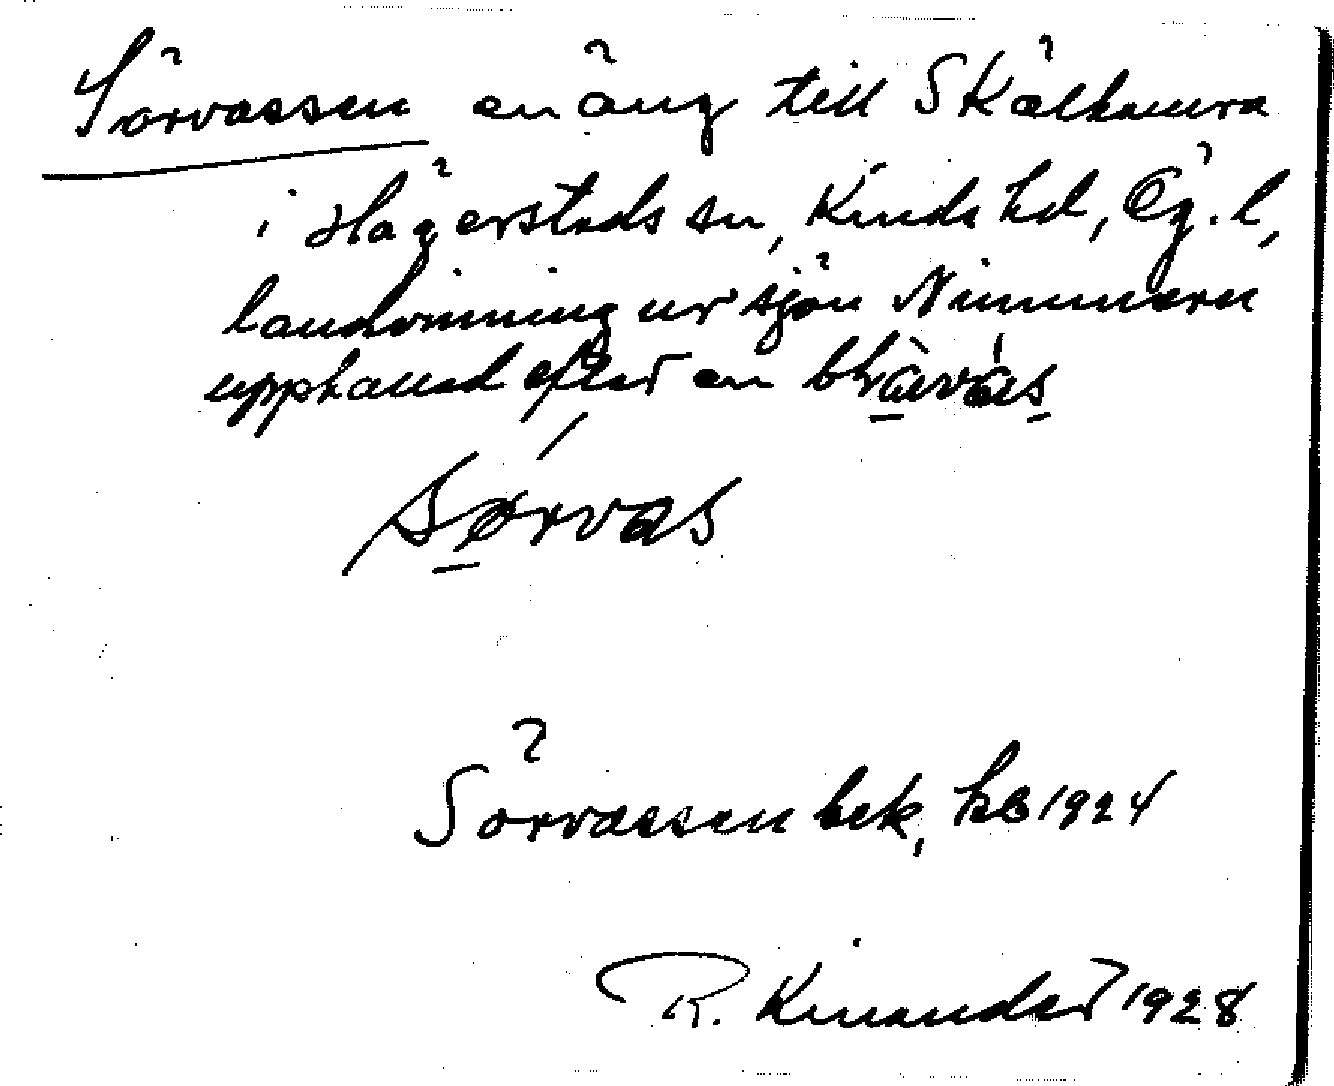 Sörvassen en äng till Skälhamra
i Hägerstads sn, Kinds hd, Ög. l,
landvinning ur sjön Nimmern
upphaused efter en bhàvás
Sørvas
Sörvassen bek, hs 1924
R. Kinander 1928